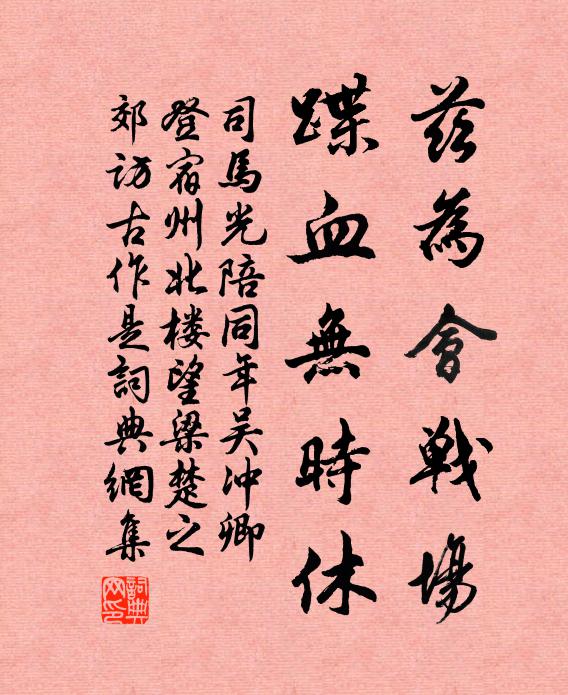 茲為會戰場
蹀血無時休
司馬光陪同年吴沖卿
登宿州北楼望梁楚之
郊訪古作是詞典網集
詞典网印